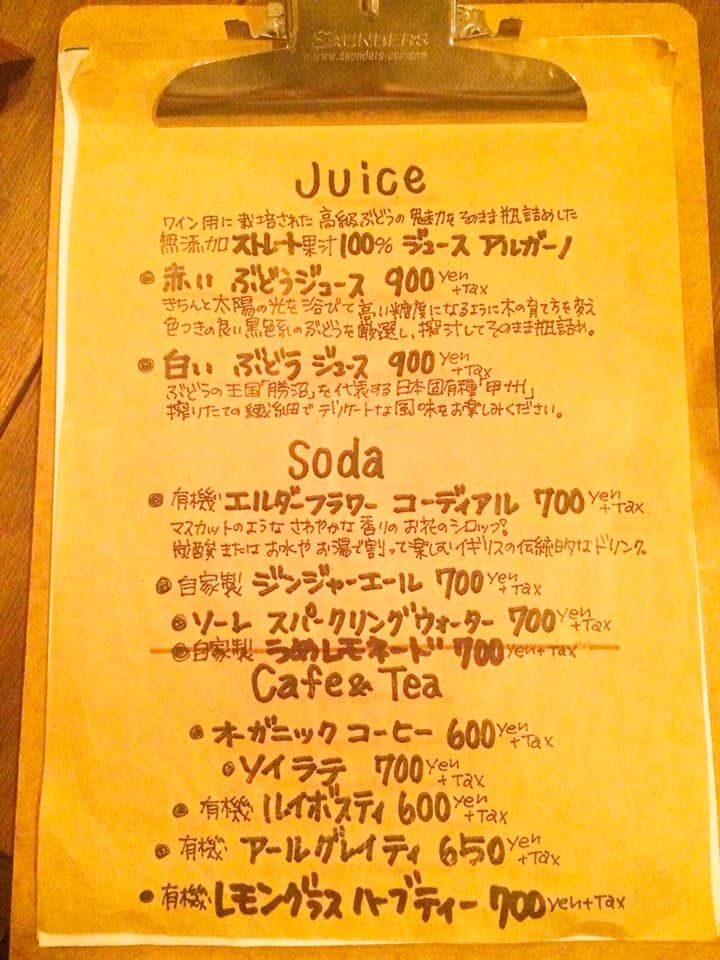 SAUNDERS
www.saunders-usa.com
Juice
ワイン用に栽培された高級ぶどうの魅力をそのまま瓶詰めした
無添加 ストレート果汁100% ジュース アルガーノ
赤い ぶどうジュース 900 yen +Tax
きちんと太陽の光を浴びて高い糖度になるように木の育て方を変え
色つきの良い黒色系のぶどうを厳選し、搾汁してそのまま瓶詰め。
白い ぶどう ジュース 900 yen +Tax
ぶどうの王国「勝沼」を代表する日本固有種「甲州」
搾りたての繊細でデリケートな風味をお楽しみください。
Soda
有機 エルダーフラワー コーディアル 700 yen +Tax
マスカットのような さわやかな香りの お花のシロップ。
炭酸または お水や お湯で割って楽しむイギリスの伝統的なドリンク。
自家製 ジンジャーエール 700 yen +Tax
ソーレ スパークリングウォーター 700 yen +Tax
自家製 うめレモネード 700 yen+Tax
Cafe & Tea
オーガニック コーヒー 600 yen +Tax
ソイラテ 700 yen +Tax
有機 ルイボスティ 600 yen +Tax
有機 アールグレイティ 650 yen +Tax
有機 レモングラス ハーブティー 700 yen+Tax